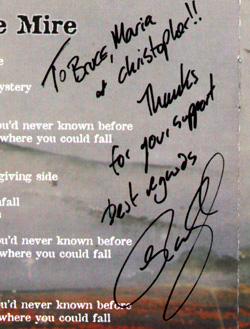 e Mire
To Bruce, Maria
& christopher!!
Thanks
for your support
best regards
e
ystery
u'd never known before
where you could fall
giving side
nfall
s
u'd never known before
where you could fall
u'd never known before
where you could fall